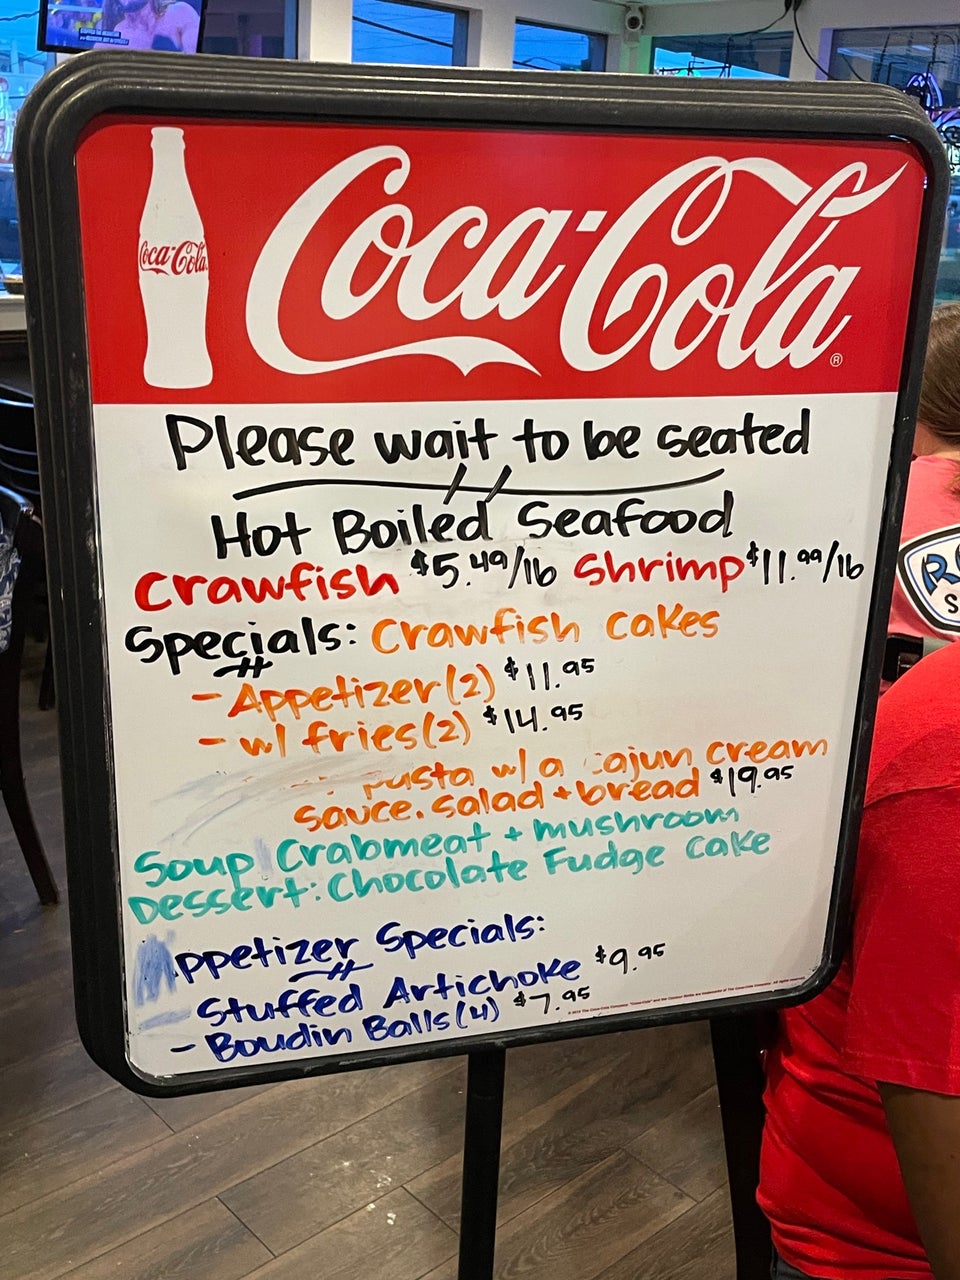 Coca-Cola
Coca-Cola®
Please wait to be seated
Hot Boiled Seafood
Crawfish $5.49/lb Shrimp $11.99/lb
Specials: Crawfish cakes
- Appetizer (2) $11.95
- w/ fries (2) $14.95
pasta w/ a cajun cream
sauce. Salad + bread $19.95
Soup Crabmeat + mushroom
Dessert: Chocolate Fudge Cake
Appetizer Specials:
- Stuffed Artichoke $9.95
- Boudin Balls (4) $7.95